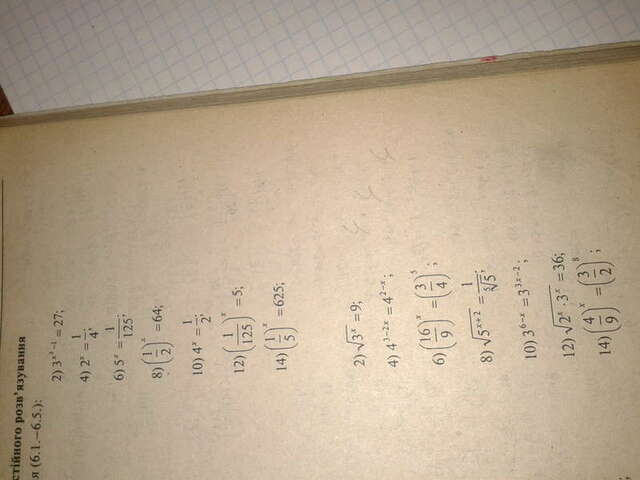 стійного розв'язування
я (6.1.—6.5.):
2) 3^{x²−1} = 27;
4) 2^x = 1/4;
6) 5^x = 1/125;
8) (1/2)^x = 64;
10) 4^x = 1/2;
12) (1/125)^x = 5;
14) (1/5)^x = 625;
2) √(3^x) = 9;
4) 4^{3−2x} = 4^{2−x};
6) (16/9)^x = (3/4)^5;
8) √(5^{x+2}) = 1/⁵√5;
10) 3^{6−x} = 3^{3x−2};
12) √(2^x · 3^x) = 36;
14) (4/9)^x = (3/2)^8;